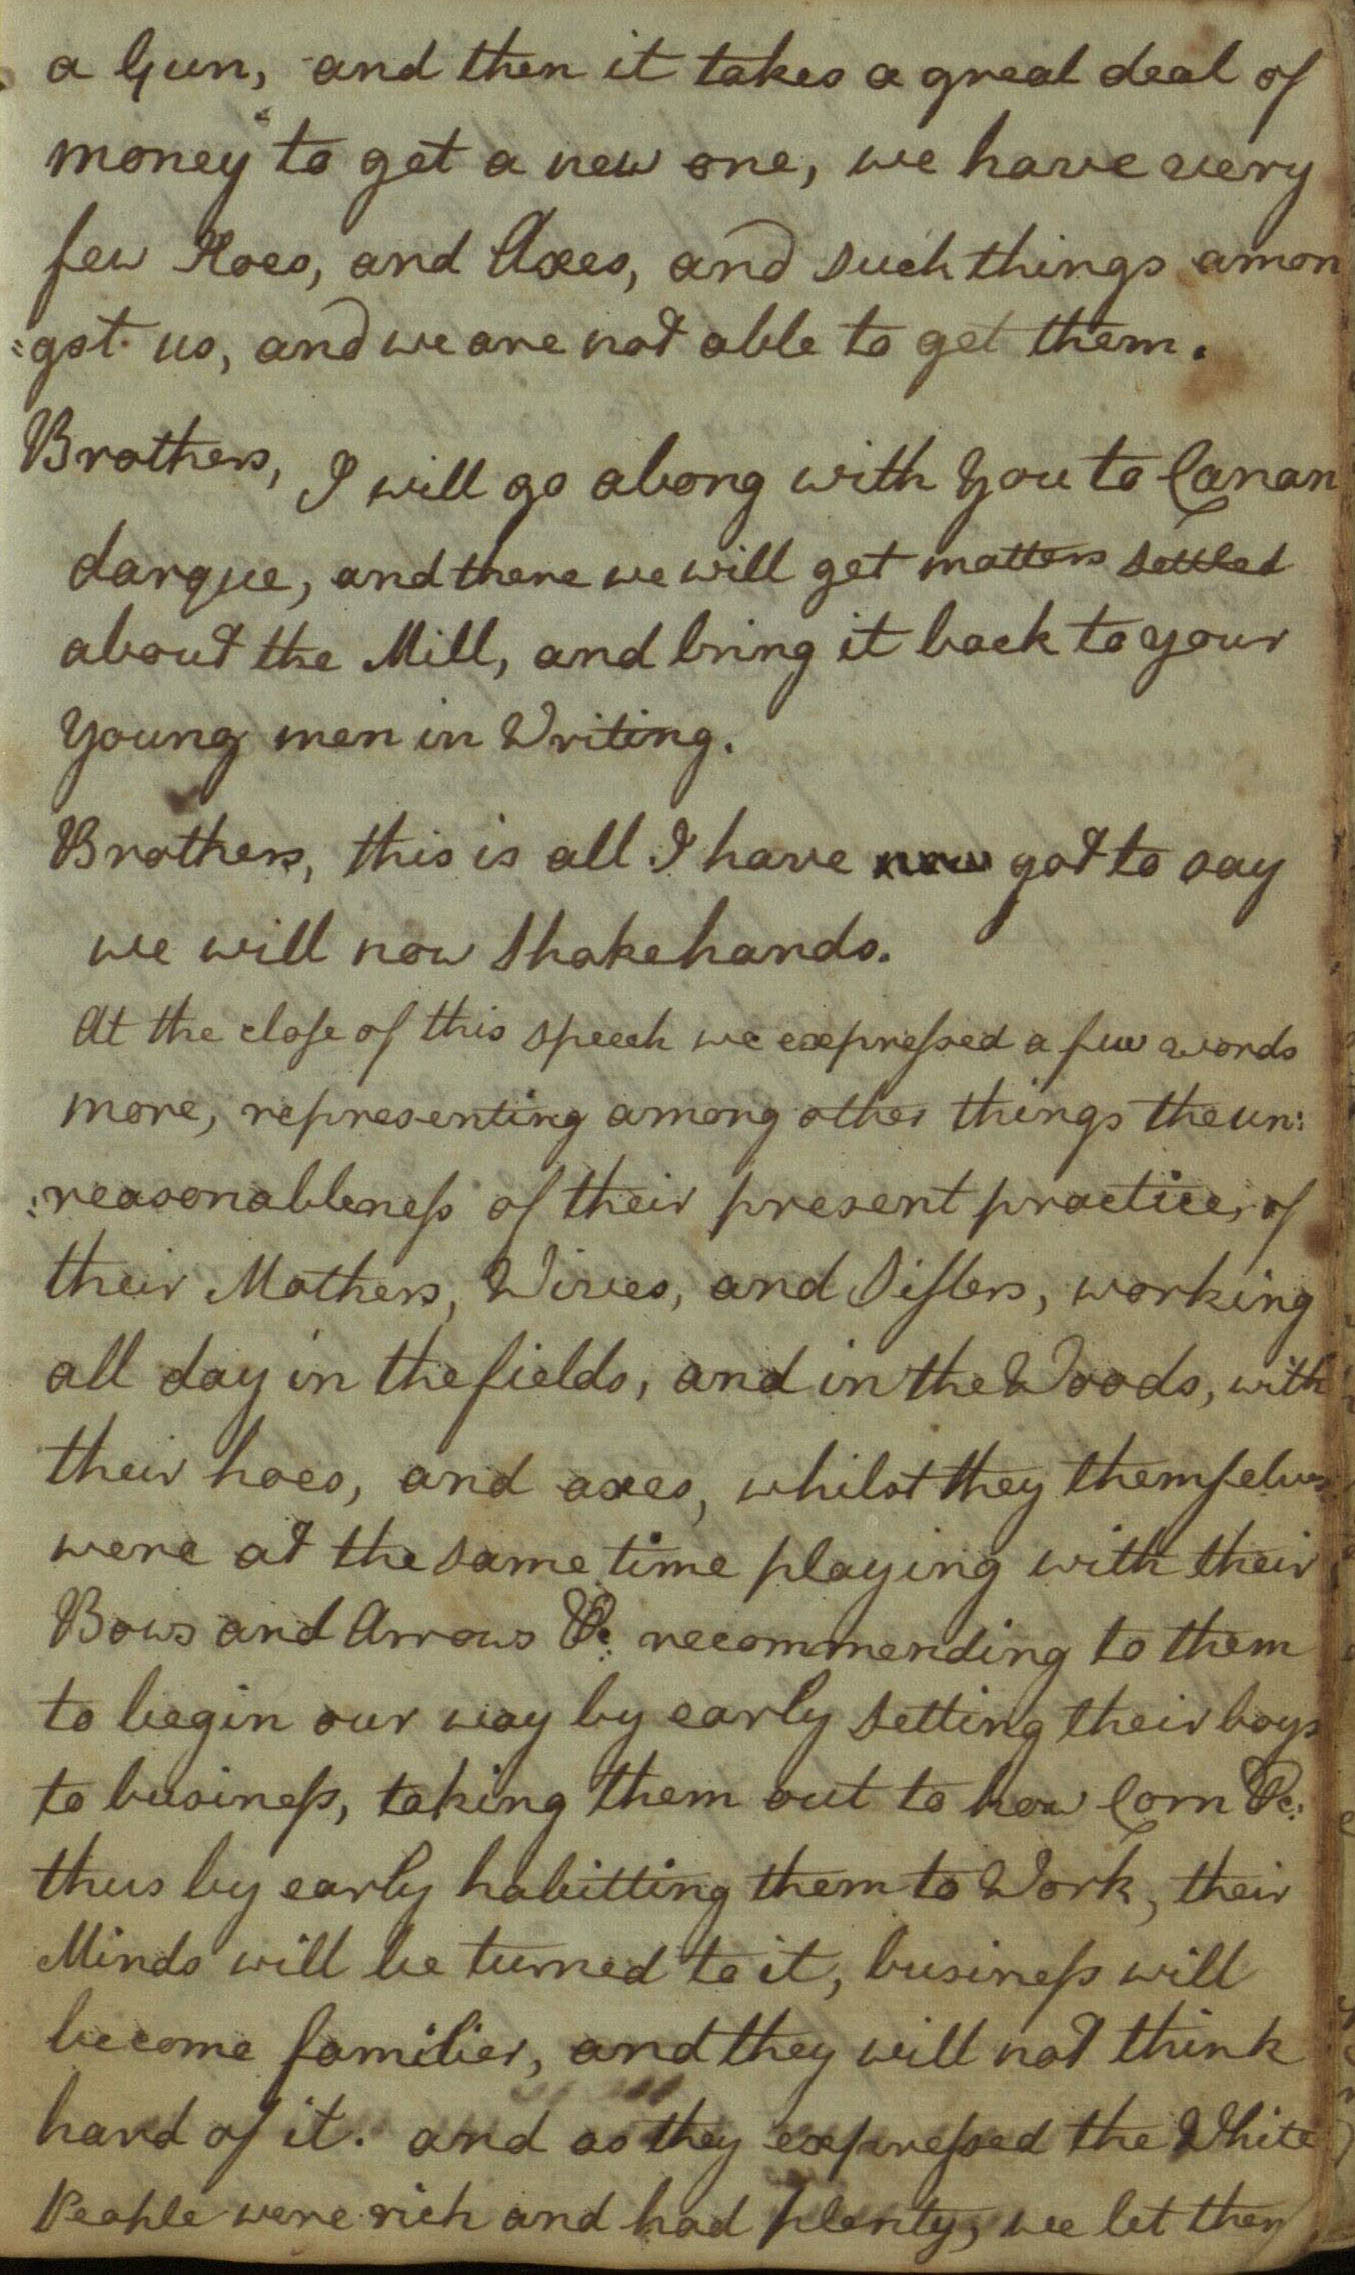 a Gun, and then it takes a great deal of
money to get a new one, we have very
few Hoes, and Axes, and such things amon
=gst us, and we are not able to get them.
Brothers, I will go along with you to Canan
darque, and there we will get matters settled
about the Mill, and bring it back to your
young men in Writing.
Brothers, this is all I have now got to say
we will now shake hands.
At the close of this speech we expressed a few words
more, representing among other things the un:
:reasonableness of their present practice, of
their Mothers, Wives, and Sisters, working
all day in the fields, and in the Woods, with
their hoes, and axes, whilst they themselves
were at the same time playing with their
Bows and Arrows &c. recommending to them
to begin our way by early setting their boys
to business, taking them out to how Corn &c:
thus by early habitting them to Work, their
Minds will be turned to it, business will
become familier, and they will not think
hard of it. and as they expressed the White
People were rich and had plenty, we let them